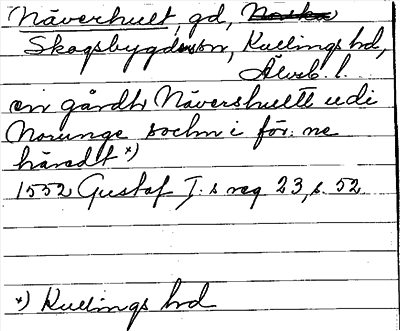 Näverhult, gd,
Skogsbygdens sn, Kullings hd,
Älvsb. l.
en gårdh Näverhullt udi
Norunge sochn i för: ne
häradt *)
1552 Gustaf I:s reg 23, s. 52.
*) Kullings hd